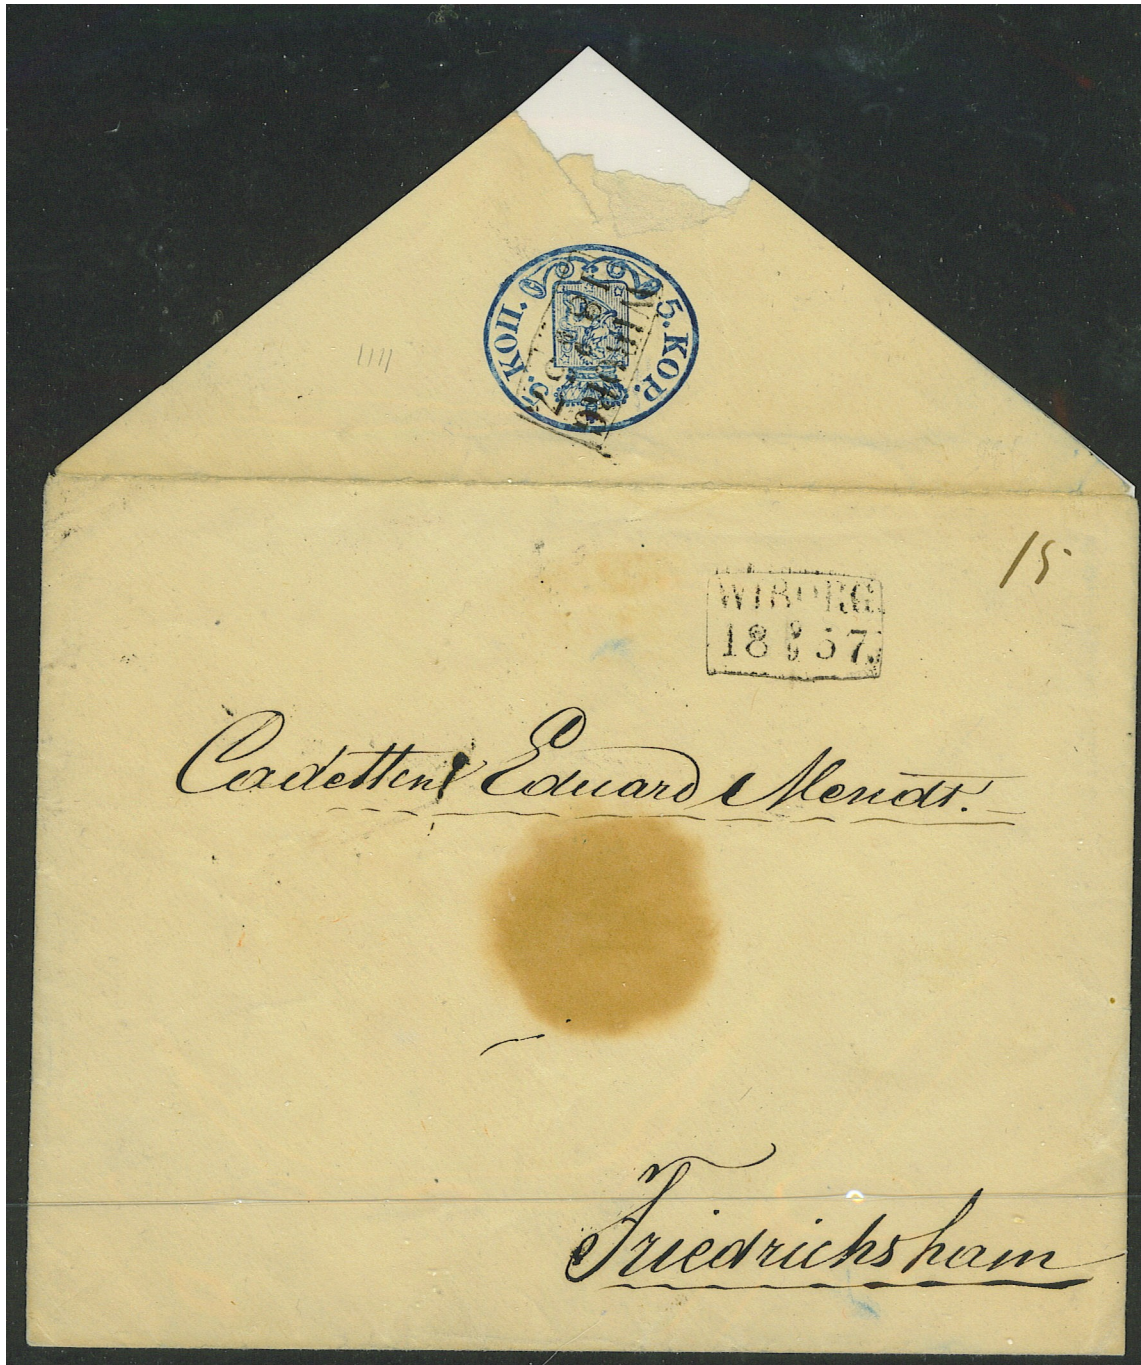 5. КОП. 5. KOP.
WIBORG
15
WIBORG.
18 9/9 57.
Cadetten Eduard Mendt.
Friedrichsham